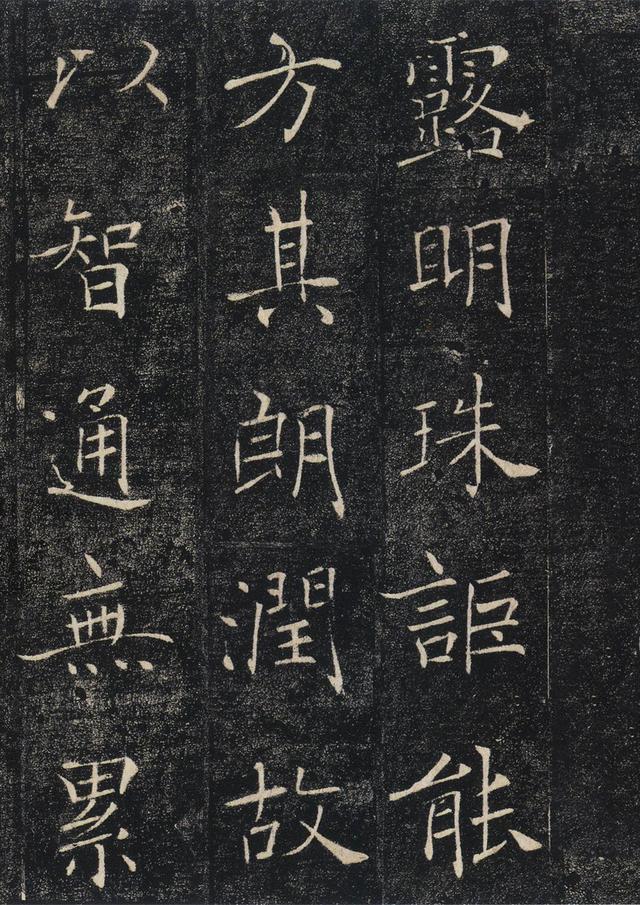 露明珠詎能
方其朗潤故
以智通無累